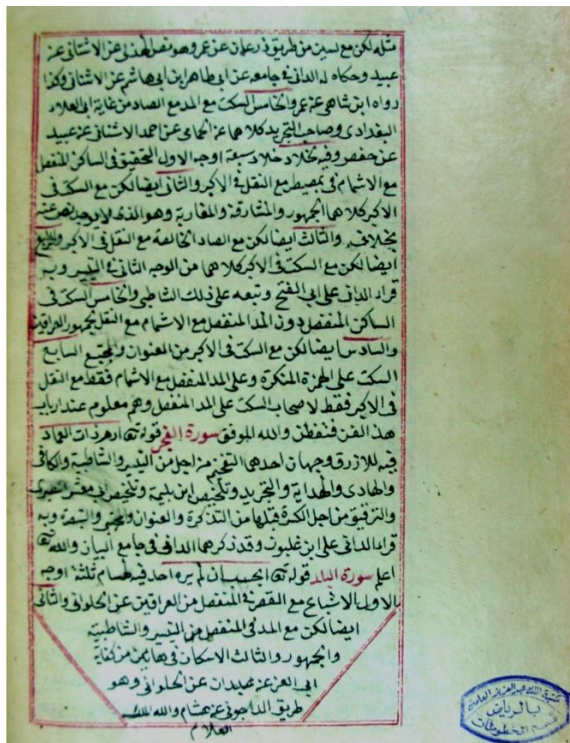 مثله لكن مع لسين من طريق ذرعان عن عمر وهو نص الهذلي عن الاشناني عن
عبيد وحكاه له الداني في جامعه عن ابي طاهر ابن ابي هاشم عن الاشناني وكذا
رواه ابن شاهي عن عمرو الخامس السكت مع المد مع الصاد من غاية ابي العلاء
البغدادي وصاحب التجريد كلاهما عن الحمامي عن احمد الاشناني عن عبيد
عن حفص وفيه لخلاد سبعة اوجه الاول التحقيق في الساكن المنفصل
مع الاشمام في بمصيطر مع النقل في الاكبر والثاني ايضا لكن مع السكت في
الاكبر كلاهما للجمهور والمشارقة والمغاربة وهو الذي لا يوجد نص عنه
بخلافه والثالث ايضا لكن مع الصاد الخالصة مع النقل في الاكبر والرابع
ايضا لكن مع السكت في الاكبر كلاهما من الوجه الثاني في التيسير وبه
قراء الداني على ابي الفتح وتبعه على ذلك الشاطبي والخامس السكت في
الساكن المنفصل دون المد المنفصل مع الاشمام مع النقل لجمهور العراقيين
والسادس ايضا لكن مع السكت في الاكبر من العنوان والمجتبى السابع
السكت على الهمزة المنكرة وعلى المد المنفصل مع الاشمام فقط مع النقل
في الاكبر فقط لاصحاب السكت على المد المنفصل وهم معلوم عند ارباب
هذا الفن فتفطن والله الموفق سورة الفجر قوله تعالى ارم ذات العماد
فيه للازرق وجهان احدهما التفخيم من اجل من التيسير والشاطبية والكافي
والهادي والهداية والتجريد وتلخيص ابن بليمة وتلخيص ابي معشر الطبري
والترقيق من اجل الكسرة قبلها من التذكرة والعنوان والمجتبى والتبصرة وبه
قراء الداني على ابن غلبون وقد ذكرهما الداني في جامع البيان والله تعالى
اعلم سورة البلد قوله تعالى ايحسب ان لم يره احد فيه لهشام ثلثة اوجه
الاول الاشباع مع القصر في المنفصل من العراقيين عن الحلواني والثاني
ايضا لكن مع المد في المنفصل من التيسير والشاطبية
والجمهور والثالث الاسكان في هاء من كفاية
ابي العز عن عبدان عن الحلواني وهو
طريق الداجوني عن هشام والله الملك
العلام